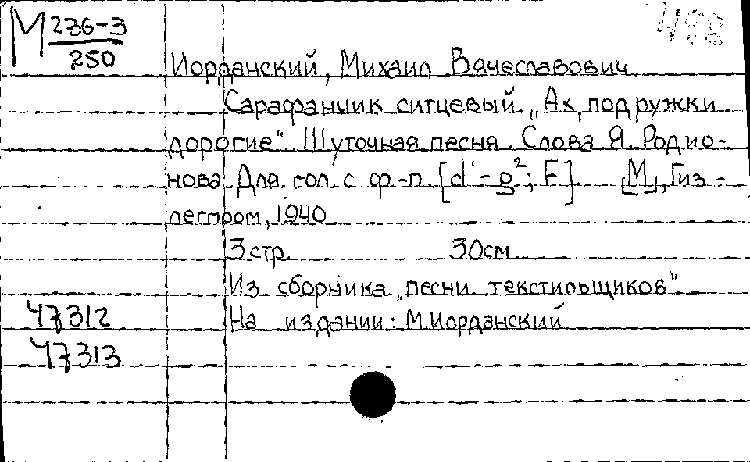 М 236-3
250
498
Иорданский, Михаил Вячеславович
Сарафанчик ситцевый. „Ах, подружки
дорогие". Шуточная песня. Слова Я. Родио-
нова. Для гол. с ф-п. [d'-g²; F]. [М], Гиз
легпром, 1940
3 стр. 30см
Из сборника „Песни текстильщиков"
На издании: М. Иорданский
47312
47313